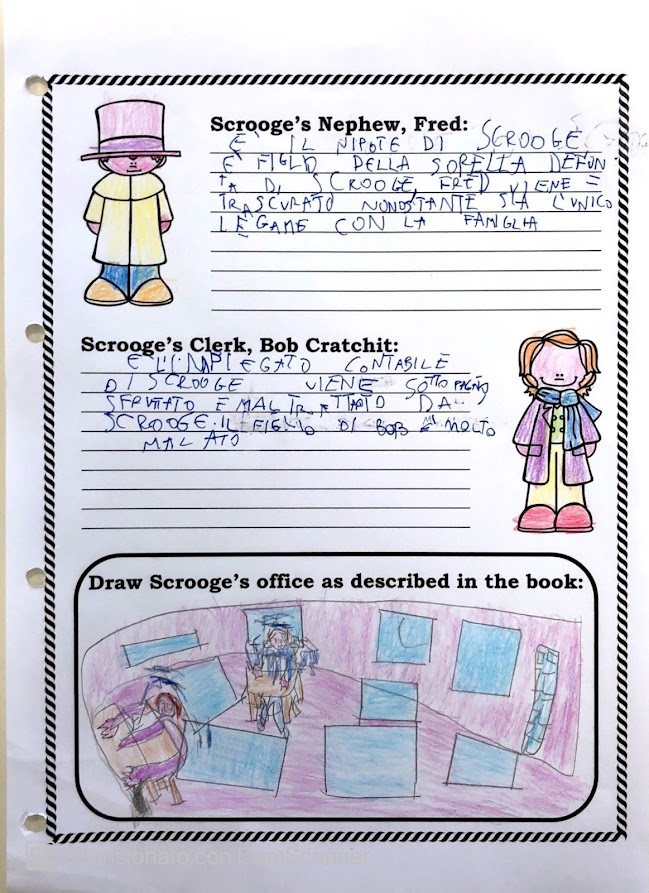 Scrooge's Nephew, Fred:
È IL NIPOTE DI SCROOGE
È FIGLIO DELLA SORELLA DEFUN-
TA DI SCROOGE, FRED VIENE =
TRASCURATO NONOSTANTE SIA L'UNICO
LEGAME CON LA FAMIGLIA
Scrooge's Clerk, Bob Cratchit:
È L'IMPIEGATO CONTABILE
DI SCROOGE VIENE SOTTO PAGATO
SFRUTTATO E MALTRATTATO DA
SCROOGE. IL FIGLIO DI BOB È MOLTO
MALATO
Draw Scrooge's office as described in the book:
Scansionato con CamScanner